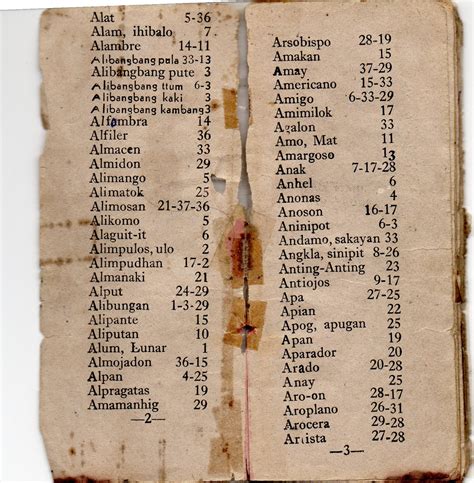 Alat 5-36
Alam, ihibalo 7
Alambre 14-11
Alibangbang pula 33-13
Alibangbang pute 3
Alibangbang itum 6-3
Alibangbang kaki 3
Alibangbang kambang 3
Alfombra 14
Alfiler 36
Almacen 33
Almidon 29
Alimango 5
Alimatok 25
Alimosan 21-37-36
Alikomo 5
Alaguit-it 6
Alimpulos, ulo 2
Alimpudhan 17-2
Almanaki 21
Alput 24-29
Alibungan 1-3-29
Alipante 15
Aliputan 10
Alum, Lunar 1
Almojadon 36-15
Alpan 4-25
Alpragatas 19
Amamanhig 29
—2—
Arsobispo 28-19
Amakan 15
Amay 37-29
Americano 15-33
Amigo 6-33-29
Amimilok 17
Agalon 33
Amo, Mat 11
Amargoso 13
Anak 7-17-28
Anhel 6
Anonas 4
Anoson 16-17
Aninipot 6-3
Andamo, sakayan 33
Angkla, sinipit 8-26
Anting-Anting 23
Antiojos 9-17
Apa 27-25
Apian 22
Apog, apugan 25
Apan 19
Aparador 20
Arado 20-28
Anay 25
Aro-on 28-17
Aroplano 26-31
Arocera 29-28
Artista 27-28
—3—